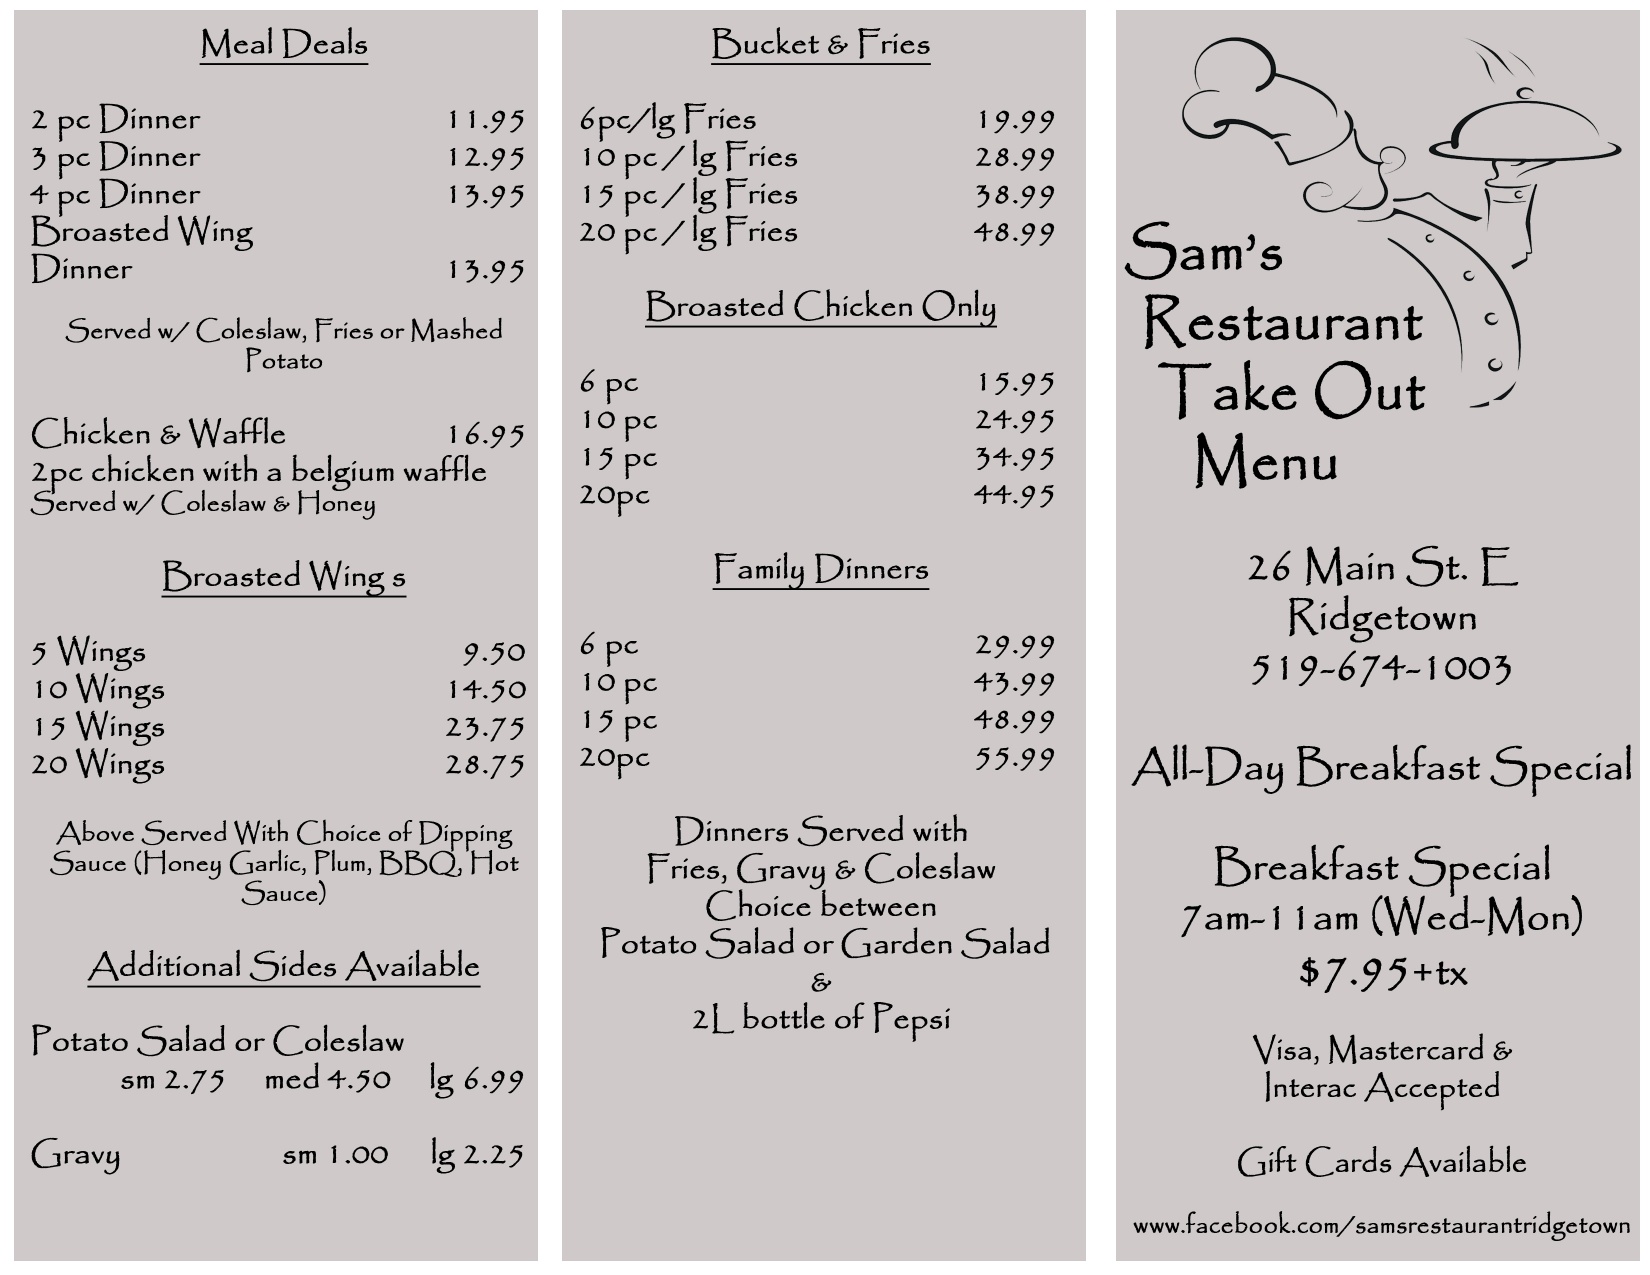 Meal Deals
2 pc Dinner 11.95
3 pc Dinner 12.95
4 pc Dinner 13.95
Broasted Wing
Dinner 13.95
Served w/ Coleslaw, Fries or Mashed
Potato
Chicken & Waffle 16.95
2pc chicken with a belgium waffle
Served w/ Coleslaw & Honey
Broasted Wing s
5 Wings 9.50
10 Wings 14.50
15 Wings 23.75
20 Wings 28.75
Above Served With Choice of Dipping
Sauce (Honey Garlic, Plum, BBQ, Hot
Sauce)
Additional Sides Available
Potato Salad or Coleslaw
sm 2.75 med 4.50 lg 6.99
Gravy sm 1.00 lg 2.25
Bucket & Fries
6pc/lg Fries 19.99
10 pc / lg Fries 28.99
15 pc / lg Fries 38.99
20 pc / lg Fries 48.99
Broasted Chicken Only
6 pc 15.95
10 pc 24.95
15 pc 34.95
20pc 44.95
Family Dinners
6 pc 29.99
10 pc 43.99
15 pc 48.99
20pc 55.99
Dinners Served with
Fries, Gravy & Coleslaw
Choice between
Potato Salad or Garden Salad
&
2L bottle of Pepsi
Sam's
Restaurant
Take Out
Menu
26 Main St. E
Ridgetown
519-674-1003
All-Day Breakfast Special
Breakfast Special
7am-11am (Wed-Mon)
$7.95+tx
Visa, Mastercard &
Interac Accepted
Gift Cards Available
www.facebook.com/samsrestaurantridgetown